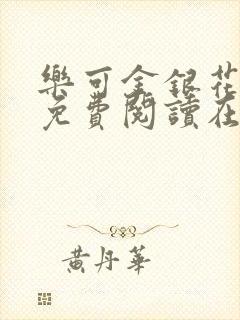 樂可金銀花
免費閱讀在
黃丹華